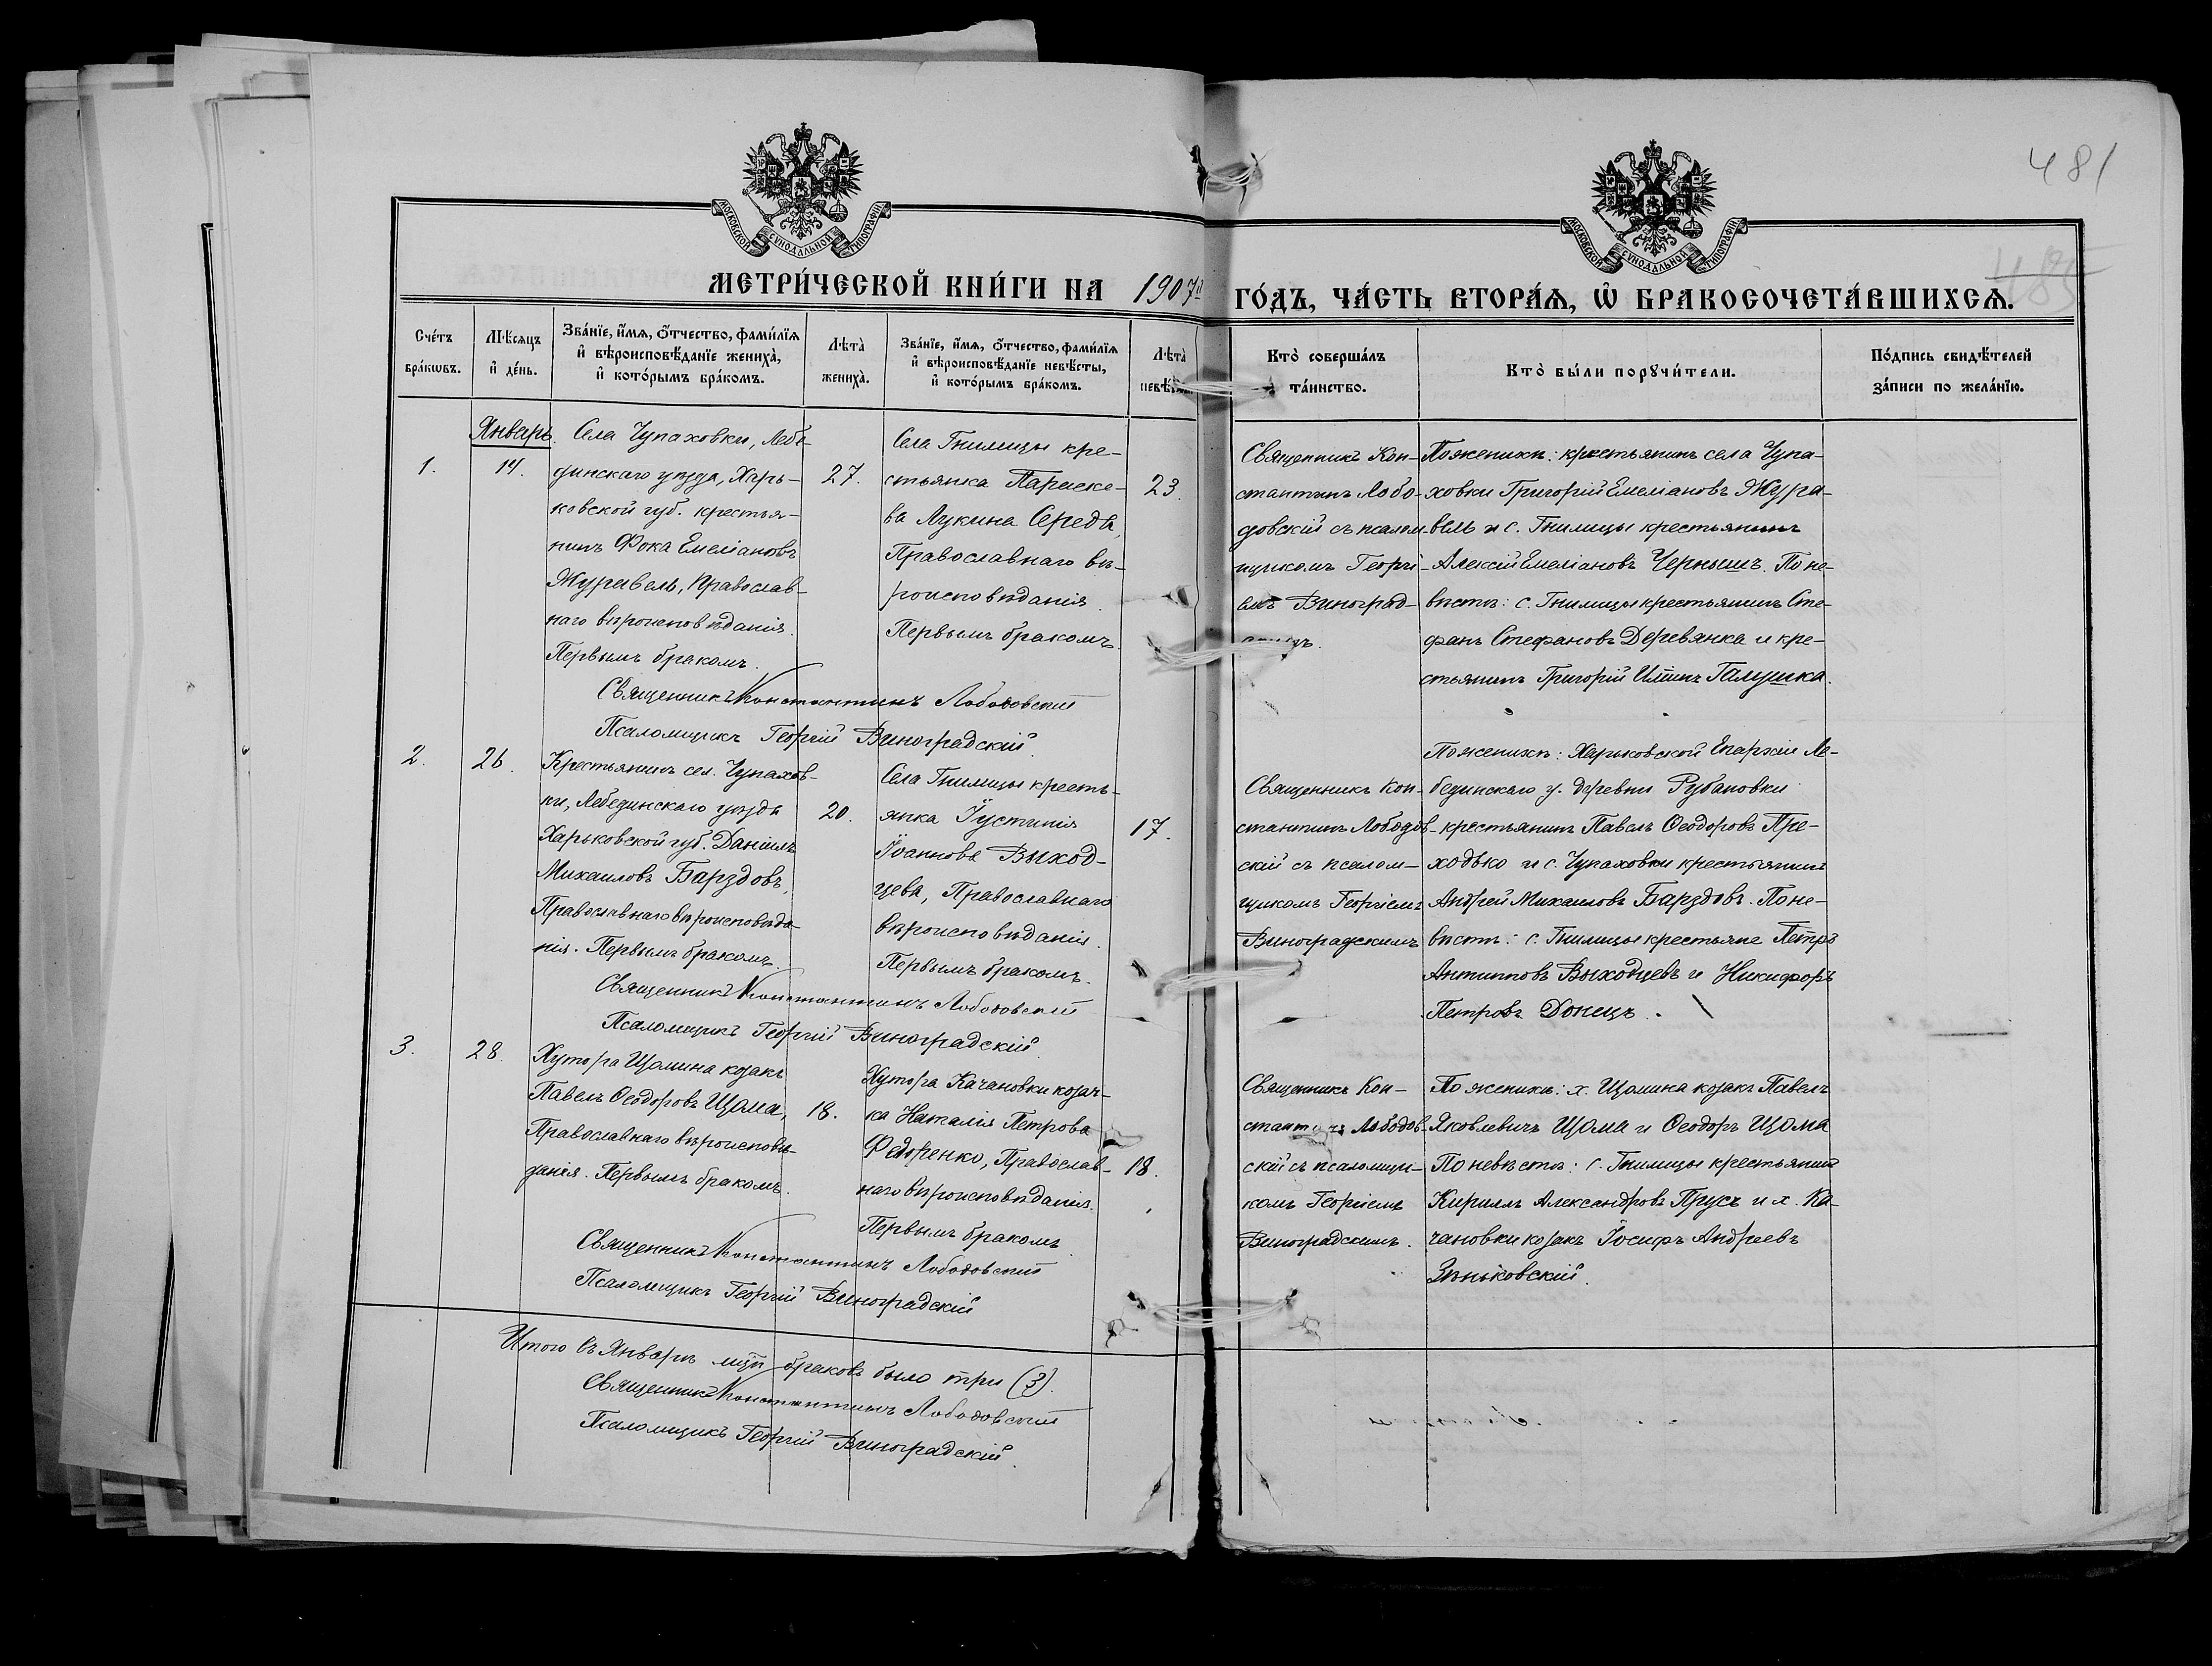 481
485
МОСКОВСКОЙ СѴНОДАЛЬНОЙ ТИПОГРАФІИ
МОСКОВСКОЙ СѴНОДАЛЬНОЙ ТИПОГРАФІИ
МЕТРИ́ЧЕСКОЙ КНИ́ГИ НА 1907й ГО́ДЪ, ЧА́СТЬ ВТОРА́Ѧ, Ѿ БРАКОСОЧЕТА́ВШИХСѦ.
Сче́тъ
бра́кѡвъ.
Мѣ́сѧцъ
и҆ де́нь.
Зва́нїе, и҆́мѧ, ѻ҆́тчество, фами́лїѧ
и҆ вѣроисповѣ́данїе жениха̀,
и҆ кото́рымъ бра́комъ.
Лѣта̀
жениха̀.
Зва́нїе, и҆́мѧ, ѻ҆́тчество, фами́лїѧ
и҆ вѣроисповѣ́данїе невѣ́сты,
и҆ кото́рымъ бра́комъ.
Лѣта̀
невѣ́
Кто̀ соверша́лъ
та́инство.
Кто̀ бы́ли порꙋчи́тели.
По́дпись свидѣ́телей
за́писи по жела́нїю.
1.
Январь
14.
Села Чупаховки, Лебе-
динскаго уѣзда, Харь-
ковской губ. крестья-
нинъ Фока Емеліановъ
Журавель, Православ-
наго вѣроисповѣданія.
Первымъ бракомъ.
27.
Села Гнилицы кре-
стьянка Параске-
ва Лукина Середа,
Православнаго вѣ-
роисповѣданія.
Первымъ бракомъ.
23.
Священникъ Кон-
стантинъ Лобо-
довскій съ псалом-
щикомъ Георгі-
емъ Виноград-
По женихѣ: крестьянинъ села Чупа-
ховки Григорій Емеліановъ Жура-
вель и с. Гнилицы крестьянинъ
Алексій Емеліановъ Чернышъ. По не-
вѣстѣ: с. Гнилицы крестьянинъ Сте-
фанъ Стефановъ Деревянка и кре-
стьянинъ Григорій Ильинъ Галушка.
Священникъ Константинъ Лободовскій
Псаломщикъ Георгій Виноградскій.
2.
26.
Крестьянинъ сел. Чупахов-
ки, Лебединскаго уѣзда
Харьковской губ. Даніилъ
Михаиловъ Барздовъ,
Православнаго вѣроисповѣда-
нія. Первымъ бракомъ
20.
Села Гнилицы кресть-
янка Іустинія
Іоаннова Выход-
цева, Православнаго
вѣроисповѣданія.
Первымъ бракомъ.
17.
Священникъ Кон-
стантинъ Лободов-
скій съ псалом-
щикомъ Георгіемъ
Виноградскимъ
По женихѣ: Харьковской Епархіи Ле-
бединскаго у. деревни Рубановки
крестьянинъ Павелъ Ѳеодоровъ Пре-
ходько и с. Чупаховки крестьянинъ
Андрей Михаиловъ Барздовъ. По не-
вѣстѣ: с. Гнилицы крестьяне Петръ
Антиповъ Выходцевъ и Никифоръ
Петровъ Донецъ.
Священникъ Константинъ Лободовскій
Псаломщикъ Георгій Виноградскій.
3.
28.
Хутора Щомина козакъ
Павелъ Ѳеодоровъ Щома,
Православнаго вѣроисповѣ-
данія. Первымъ бракомъ.
18.
Хутора Качановки козач-
ка Наталія Петрова
Федоренко, Православ-
наго вѣроисповѣданія.
Первымъ бракомъ
18.
Священникъ Кон-
стантинъ Лободов-
скій съ псаломщи-
комъ Георгіемъ
Виноградскимъ.
По женихѣ: х. Щомина козакъ Павелъ
Яковлевичъ Щома и Ѳеодоръ Щома
По невѣстѣ: с. Гнилицы крестьянинъ
Кириллъ Александровъ Прусъ и х. Ка-
чановки козакъ Іосифъ Андреевъ
Зѣньковскій.
Священникъ Константинъ Лободовскій
Псаломщикъ Георгій Виноградскій
Итого въ Январѣ мцѣ браковъ было три (3).
Священникъ Константинъ Лободовскій
Псаломщикъ Георгій Виноградскій.